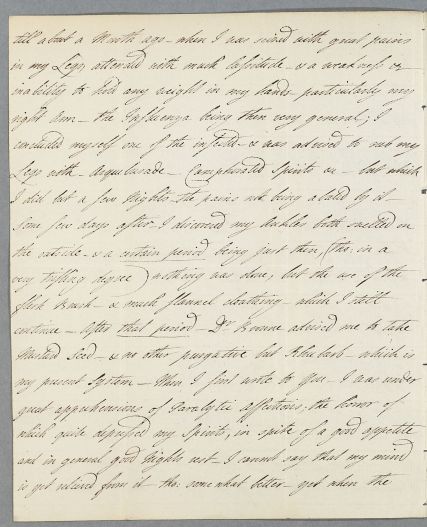 till about a Month ago - when I was seized with great pains
in my Legs attended with much lassitude - & a weakness or
inability to hold any weight in my hands particularly my
right Arm - the Influenza being then very general; I
concluded myself one of the infected - & was advised to rub my
Legs with Arquebusade - Camphorated Spirits &c - but which
I did but a few Nights - the pains not being abated by it -
Some few days after, I discovered my Ankles both swelled on
the outside - & a certain period being just then (tho' in a
very trifling degree) nothing was done, but the use of the
flesh Brush - & much flannel cloathing - which I still
continue - After that period - Dr. advised me to take
Mustard Seed - & no other purgative but Rhubarb - which is
my present System - When I first wrote to You - I was under
great apprehensions of Paralytic affections, the horror of
which quite depressed my Spirits, in spite of a good appetite
and in general good Nights rest - I cannot say that my mind
is yet relieved from it - tho: somewhat better - yet when the